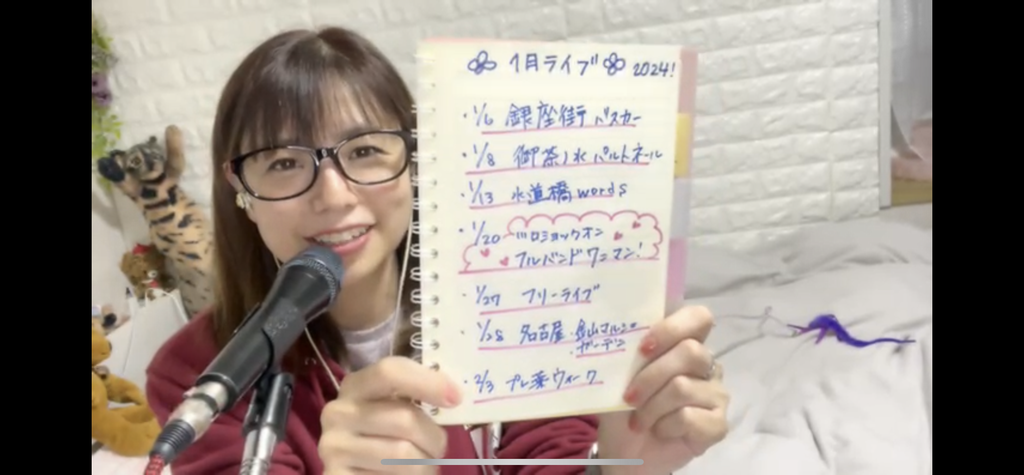 1月ライブ 2024!
・1/6 銀座街バスカー
・1/8 御茶ノ水 パルトネール
・1/13 水道橋words
・1/20
フルバンドワンマン!
・1/27 フリーライブ
・1/28 名古屋・金山マルシェ
・ガーデン
・2/3 プレ葉ウォーク